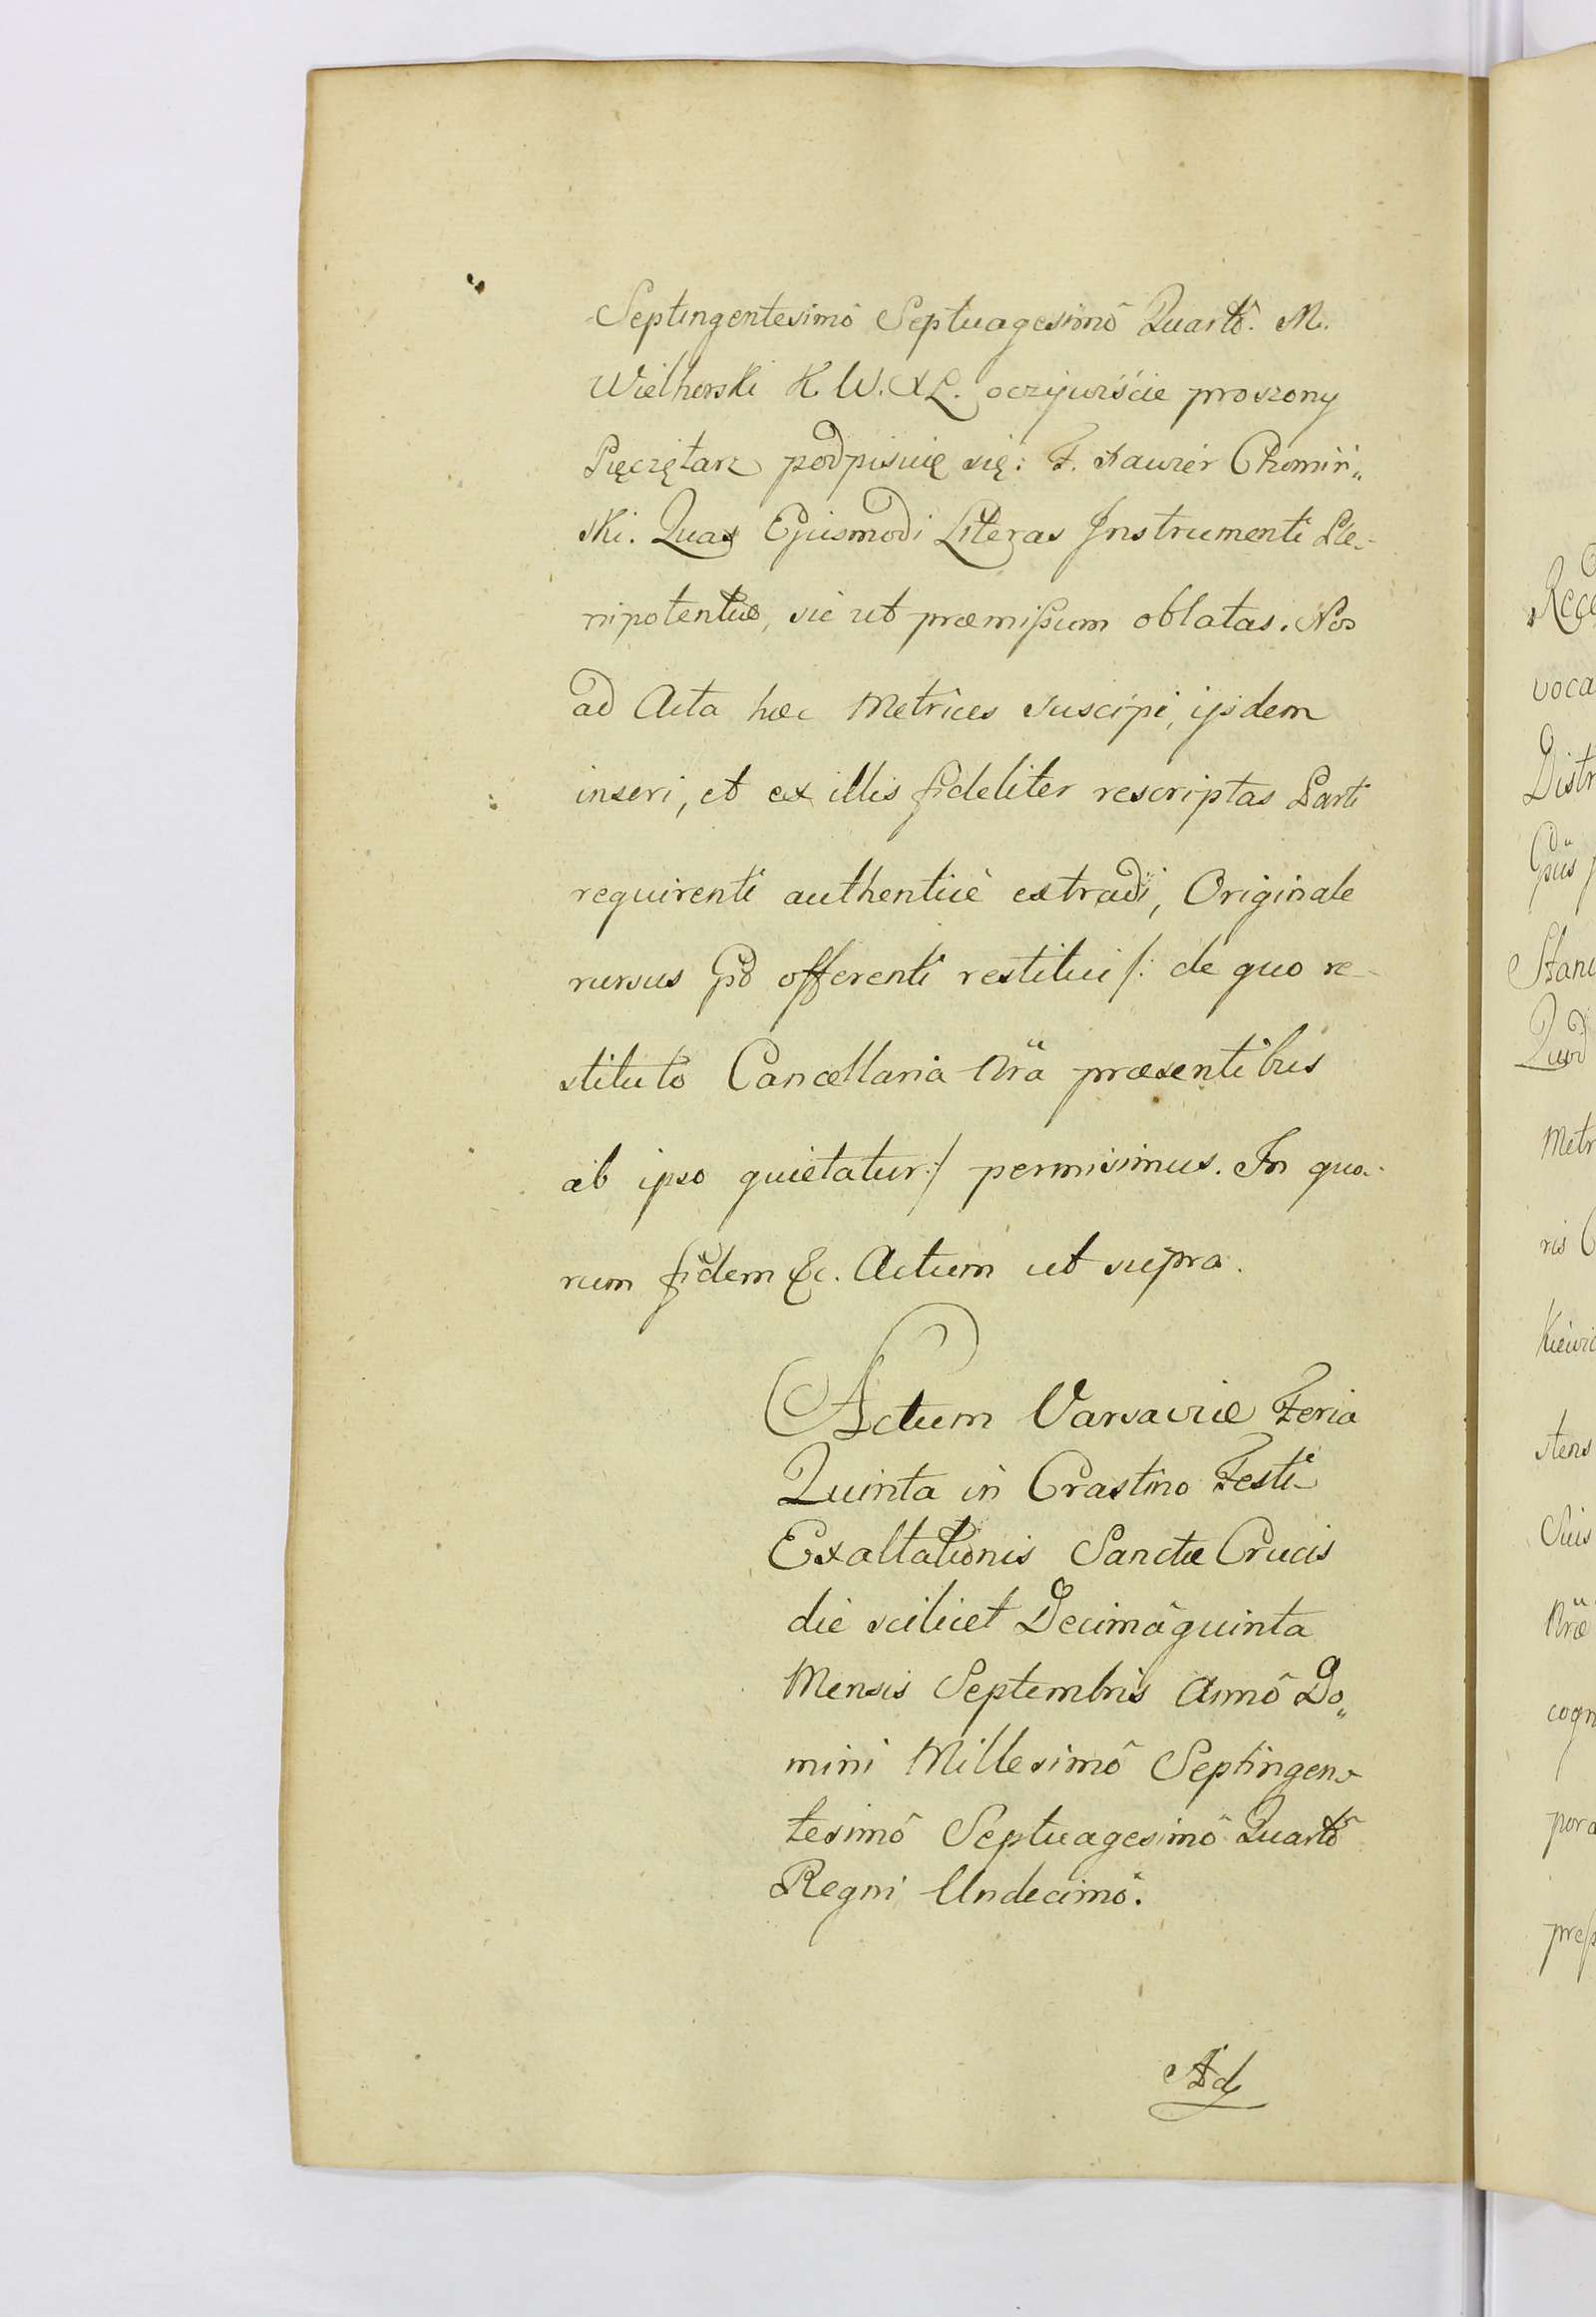 Septingentesimô Septuagesimô Quartô. M.
Wielhorski K. W. X L. oczywiście proszony
Pięczętarz podpisuię się: F. Xawier Chomiń„
ski. Quas Ejusmodi Literas Instrumenti Ple-
nipotentiæ, sic ut præmißum oblatas. Nos
ad Acta hæc Metrices suscipi, ijsdem
inseri, et ex illis fideliter rescriptas Parti
requirenti authenticè extradi, Originale
rursus offerenti restitui /: de quo re-
stituto Cancellaria Nrä præsentibus
ab ipso quietatur :/ permisimus. In quo-
rum fidem &c. Actum ut supra.
Actum Varsaviæ Feria
Quinta in Crastino Festi
Exaltationis Sanctæ Crucis
die scilicet Decimâquinta
Mensis Septembris Annô Do„
mini Millesimô Septingen-
tesimô Septuagesimô Quartô
Regni Undecimô.
Ad
Rege
voca
Distr
Gpüs
Stani
Quod
Metr
ris C
Kiewic
stens
Suis
Nræ
cogn
pora
preß